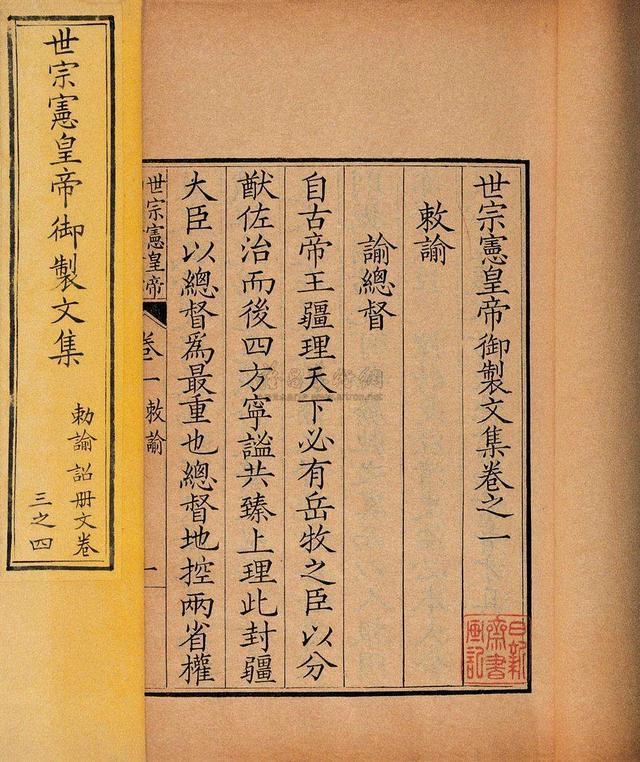 世宗憲皇帝御製文集卷之一
敕諭
諭總督
自古帝王疆理天下必有岳牧之臣以分
猷佐治而後四方寧謐共臻上理此封疆
大臣以總督爲最重也總督地控兩省權
世宗憲皇帝
卷一敕諭
一
世宗憲皇帝御製文集
勅諭 詔 册文卷
三之四
日新
齋書
畫記